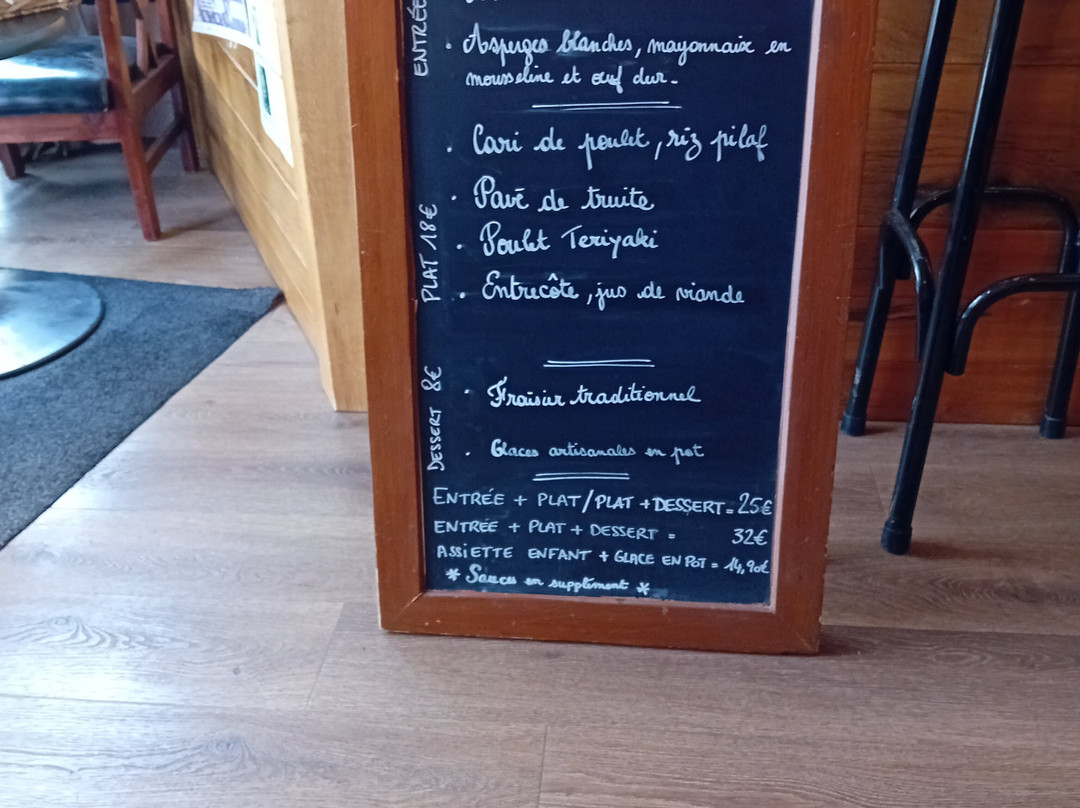 ENTRÉE
. Asperges blanches, mayonnaise en
mousseline et œuf dur.
PLAT 18€
. Cari de poulet, riz pilaf
. Pavé de truite
. Poulet Teriyaki
. Entrecôte, jus de viande
DESSERT 8€
. Fraisier traditionnel
. Glaces artisanales en pot
ENTRÉE + PLAT/PLAT + DESSERT = 25€
ENTRÉE + PLAT + DESSERT = 32€
ASSIETTE ENFANT + GLACE EN POT = 14,90€
* Sauces en supplément *